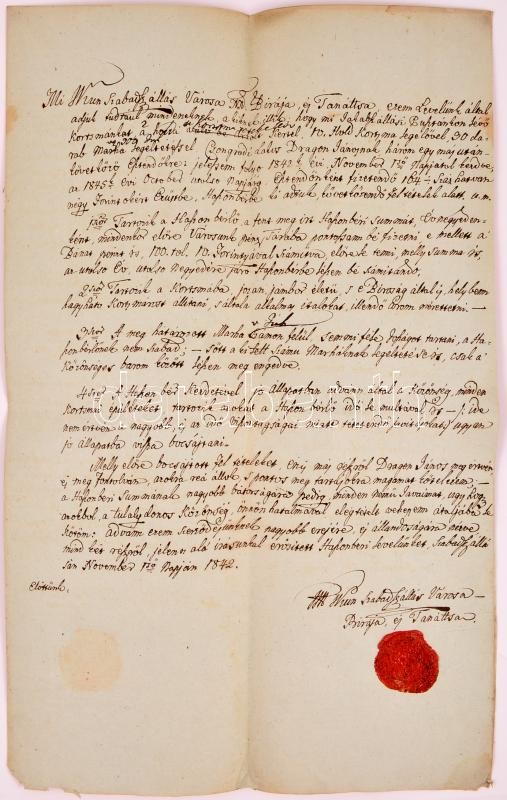 Mi Kun Szabadszállás Városa Fő Birája, és Tanáttsa, ezem Levelünk által
adjuk tudtára mindeneknek, a kiket illik, hogy mi Jakabszállási Pusztánkon lévő
Kortsmánkat, a hozzá kertel 10. Hold Kortsma legelővel 30 da-
rab Marha legeltetéssel Csongrádi lakos Dragon Jánosnak három egymás után
következő Esztendőkre; jelesen folyó 1842k évi November 1ső Napjától kezdve,
az 1845k évi October utolsó Napjáig Esztendőnként fizetendő 164 az az hatvan
négy forintokért Ezüstbe, Haszonbérbe ki adtuk, következendő feltételek alatt, u.m.
1ször Tartozik a Haszonbérlő, a fent meg írt Haszonbéri Summát, Évnegyeden-
ként, mindenkor előre Városunk pénz Tárába pontosan bé fizetni e mellett a
Bánat pénzt is, 100. tol 10. Forintyával Számitva előre le tenni, melly summa is,
az utolsó Év, utolsó negyedére járó Haszonbérbe lészen bé számitandó,
2szor Tartozik a Kortsmába, jozan, jámbor életű, s e Biróság által is, hely ben
hagyható Kortsmárost állitani, s általa alkalmas italokat, illendő áron méretteni. —
3szor A meg határozott Marha Számon felül, semmi féle Jószágot tartani, a Ha-
szonbérlőnek nem szabad; — sőtt a ki tett Számu Marháknak legeltetése is, csak a
Közönséges barom között lészen meg engedve.
4szer a Haszonbér kezdetével jó állapotban adván által a Közönség, minden
Kortsmai épületeket tartozik azokat a Haszon bérlő idő ki multával is — ide
nem értvén a nagyobb, s az idő viszontagságai miatt történendő ugyan
jó állapotba vissza bocsájtani. —
Melly előre bocsájtott fel tételeket, én is más részről Dragon János meg értvén
és meg fontolván, azokra reá állok s pontos meg tartásokra magamat kötelezem; —
a Haszonbéri Summának nagyobb bátorságára pedig, minden némü Javaimat, ugy hogy
azokból, a tulajdonos Közönség, önön hatalmával elégtételt vehessen által
kötöm: Adván ezem szerződésünknek nagyobb erejére, és állandóságára nézve
mind két részről, jelent alá írásunkal erősitett Haszonbéri levelünket, Szabadszállá
sán November 1ső Napján 1842.
Előttünk.
Kun Szabadszállás Városa —
Birája, és Tanáttsa.